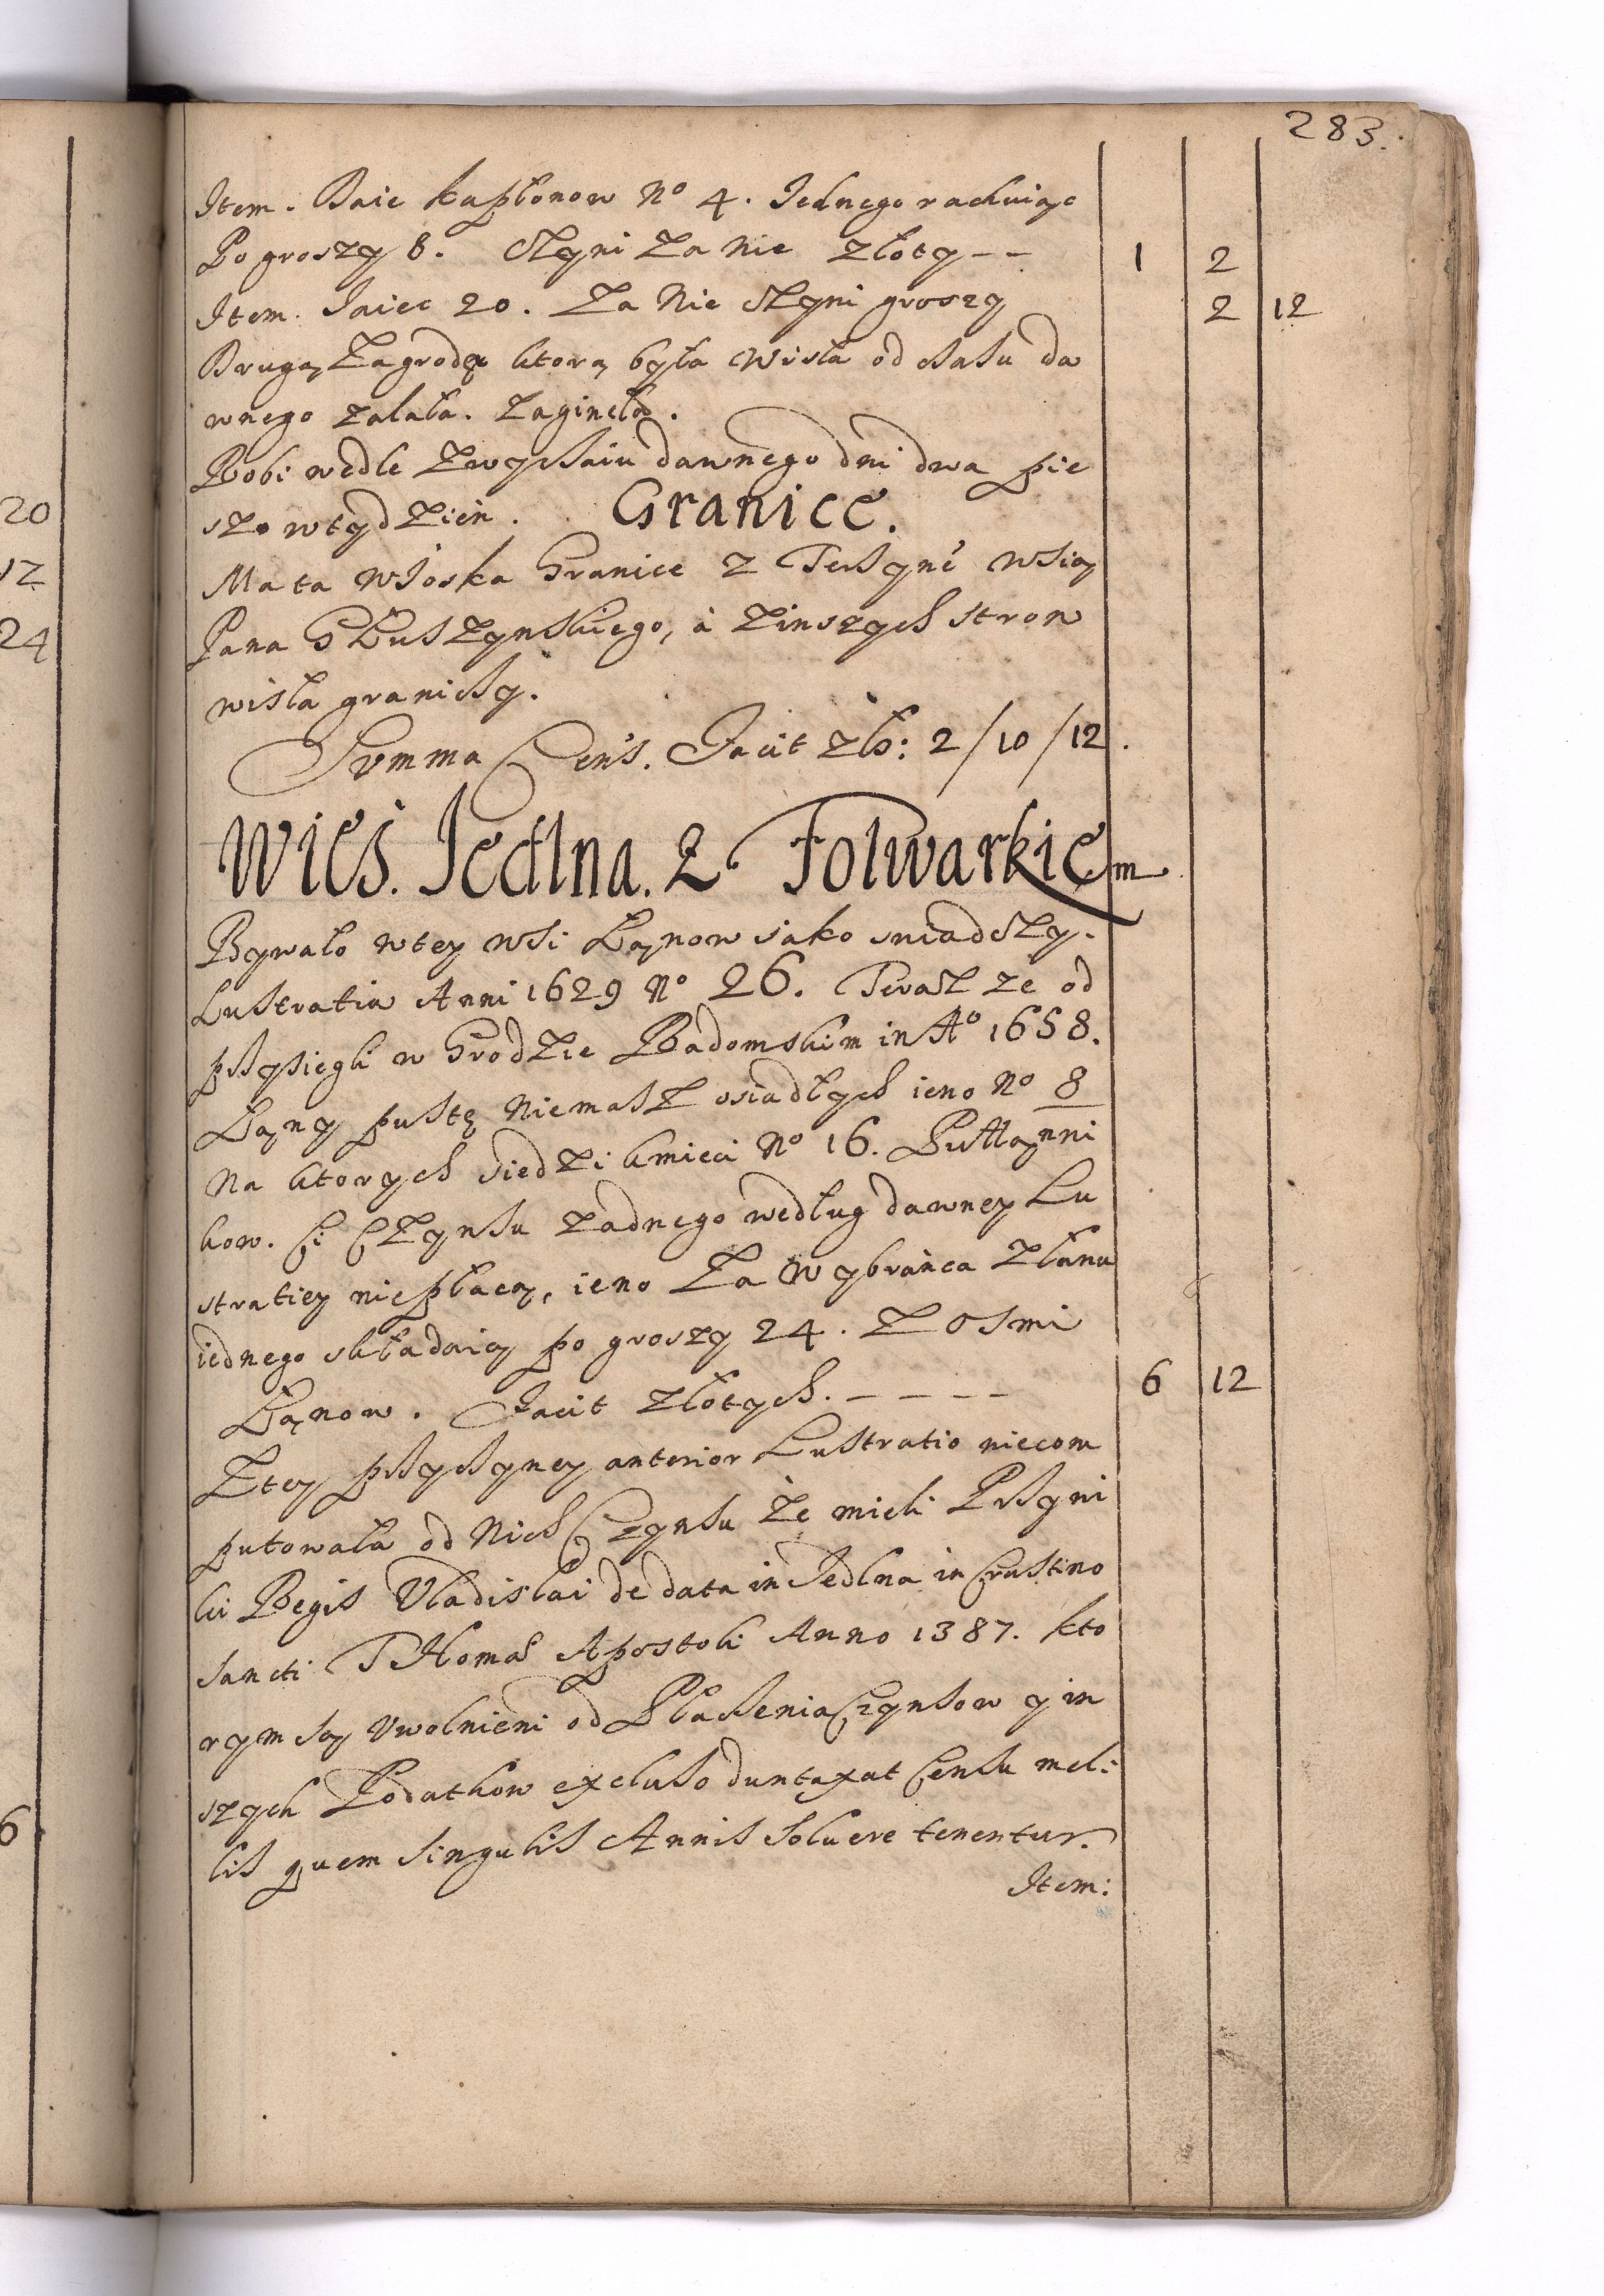 283.
Item. Daie kapłonow No 4. Jednego rachuiąc
Po groszy 8. Czyni za nie złoty -- 1 2
Item. Jaiec 20. Za nie czyni groszy 2 12
Drugą zagrodę ktorą była Wisła od czasu da
wnego zalała. Zagineła.
Robi wedle zwyczaiu dawnego dni dwa pie
szo wtydzien. Granice.
Ma ta wioska Granice z Terczyni wsią
Pana Głuszynskiego, à zinszych stron
wisła graniczy.
Summa Cens. Facit zło: 2/10/12.
Wies. Jedlna. Z Folwarkiem
Bywało wtey wsi Łanow iako swiadczy.
Lustratia Anni 1629 No 26. Teraz ze od
przysiegli w Grodzie Radomskim in Ao 1658.
Łany puste niemasz osiadłych ieno No 8
Na ktorych siedzi kmieci No 16. Pułłanni
kow. Ci Czynszu zadnego według dawney Lu
stratiey niepłacą, ieno za Wybranca złanu
iednego składaią po groszy 24. Z osmi
Łanow. Facit złotych. ---- 6 12
Ztey przyczyney anterior Lustratio niecom
putowała od nich Czynszu ze mieli Przywi
lei Regis Vladislai de data in Jedlna in Crastino
Sancti THomae Apostoli Anno 1387. kto
rym są vwolnieni od Płacenia Czynszow y in
szych Podatkow excluso duntaxat Censu mel:
lis quem singulis Annis soluere tenentur.
Item:
20
12
24
6